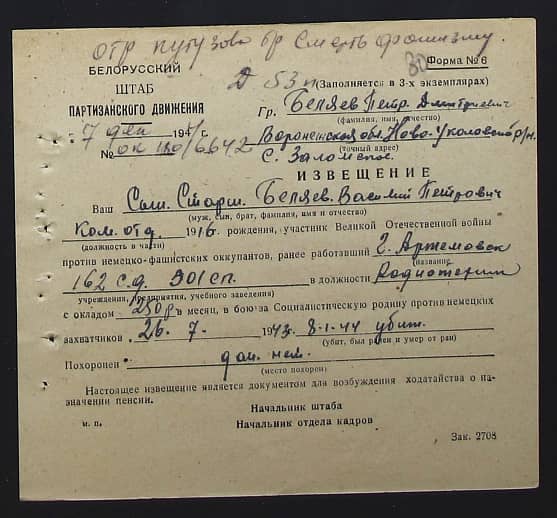 отр кутузова бр Смерть фашизму.
БЕЛОРУССКИЙ
ШТАБ
ПАРТИЗАНСКОГО ДВИЖЕНИЯ
Форма № 6
Д 53п
(Заполняется в 3-х экземплярах)
7 дек 194 г.
Гр. Беляев Петр Дмитриевич
(фамилия, имя, отчество)
№ 6642
Воронежская обл. Ново-Уколовский р/н.
(точный адрес)
с. Заломское.
ИЗВЕЩЕНИЕ
Ваш Сын. Старш. Беляев. Василий Петрович
(муж, сын, брат, фамилия, имя и отчество)
Ком. отд. 1916 рождения, участник Великой Отечественной войны
(должность в части)
против немецко-фашистских оккупантов, ранее работавший г. Артемовск
(название
162 с.д. 501 сп. в должности
учреждения, предприятия, учебного заведения)
с окладом 250 р в месяц, в бою за Социалистическую родину против немецких
захватчиков 26. 7. 1943г 8-1-44 убит.
(убит, был ранен и умер от ран)
Похоронен дан. нет.
(место похорон)
Настоящее извещение является документом для возбуждения ходатайства о на-
значении пенсии.
Начальник штаба
м. п.
Начальник отдела кадров
Зак. 2708